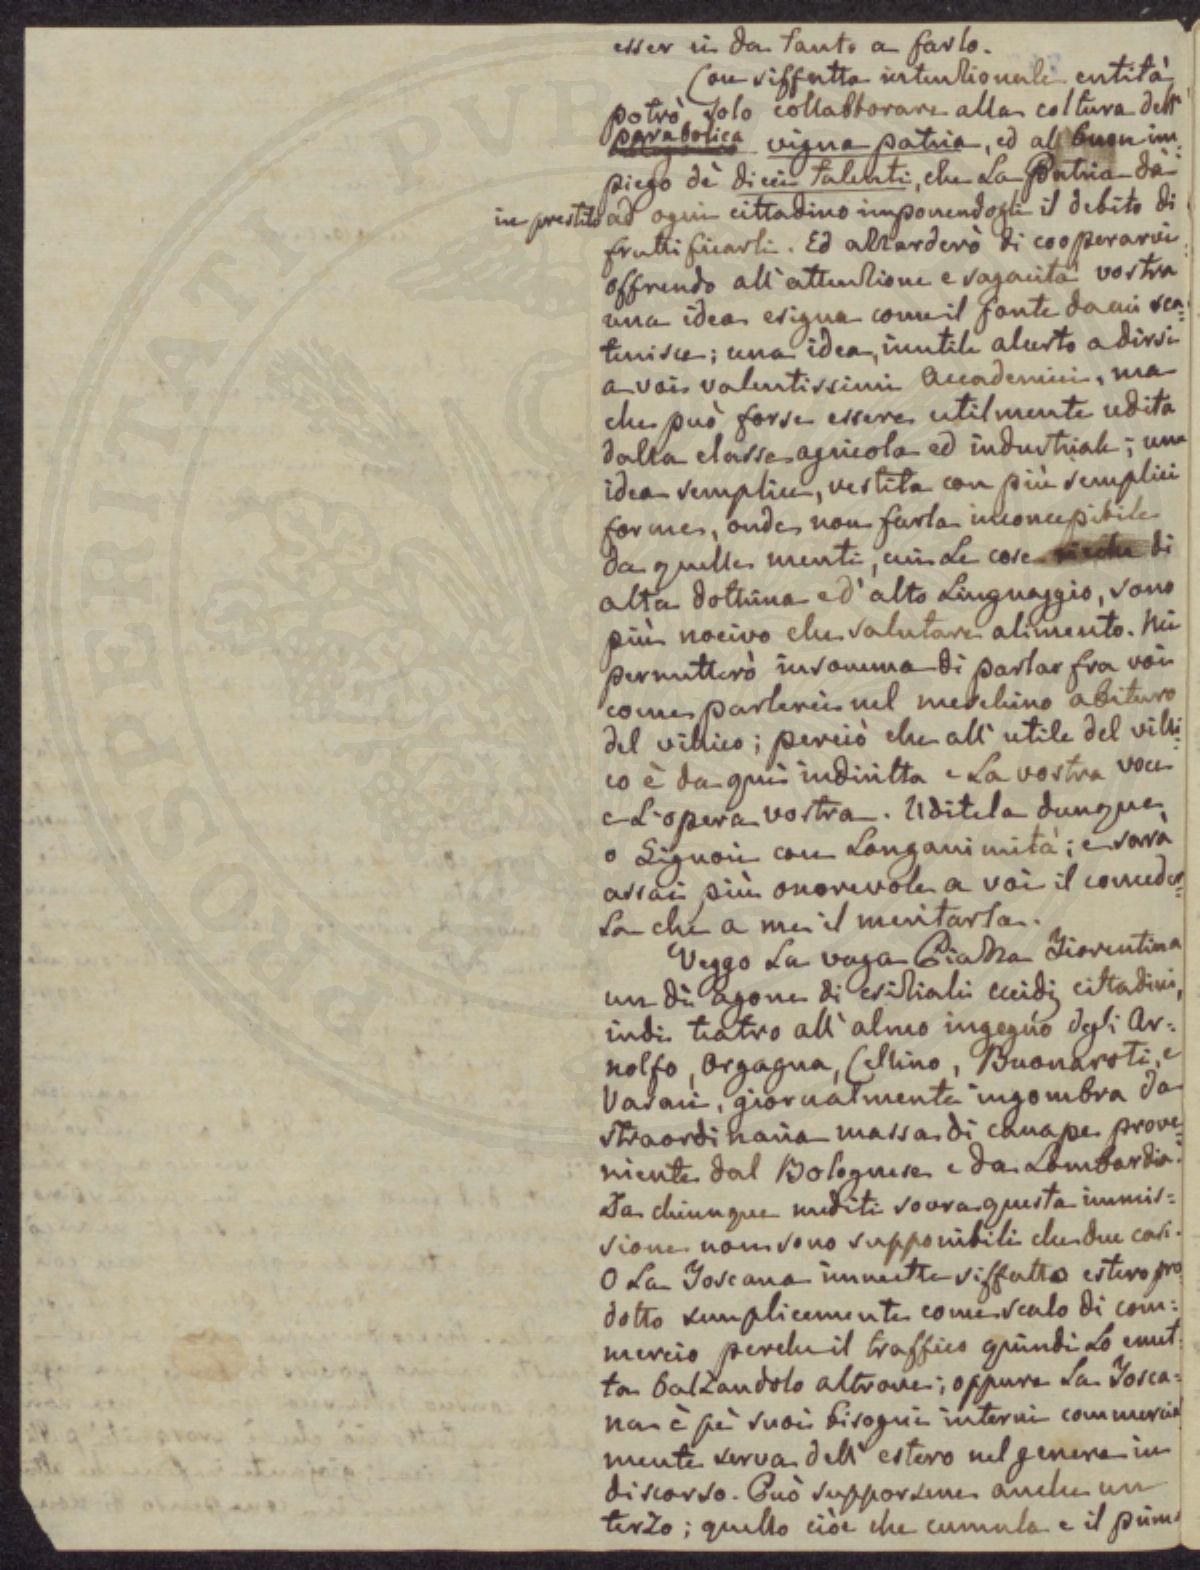 esser io da tanto a farlo.
Con siffatta intenzionale entità
potrò solo collabborare alla coltura dell'
parabolica vigna patria, ed al buon im=
piego dè dieci talenti, che La Patria dà
in prestito ad ogni cittadino imponendogli il debito di
fruttificarli. Ed azzarderò di cooperarvi
offrendo all'attenzione e sagacità vostra
una idea esigua come il fonte da cui sca=
turisce; una idea, inutile al certo a dirsi
a voi valentissimi Accademici, ma
che può forse essere utilmente udita
dalla classe agricola ed industriale; una
idea semplice, vestita con più semplici
forme, onde non farla inconcepibile
da quelle menti, cui Le cose ricche di
alta dottrina ed'alto Linguaggio, sono
più nocivo che salutare alimento. Mi
permetterò insomma di parlar fra voi
come parlerei nel meschino abituro
del villico; perciò che all'utile del villi=
co è da qui indiritta e La vostra voce
e L'opera vostra. Uditela dunque
o Signori con Longanimità; e sarà
assai più onorevole a voi il conceder=
La che a me il meritarla.
Veggo La vaga Piazza Fiorentina
un dì agone di esiziali eccidj cittadini,
indi teatro all'almo ingegno degli Ar=
nolfo, Orgagna, Cellino, Buonaroti, e
Vasari, giornalmente ingombra da
straordinaria massa di canape prove=
niente dal Bolognese e da Lombardia.
Da chiunque mediti sovra questa immis=
sione non sono supponibili che due casi.
O La Toscana immette siffatto estero pro
dotto semplicemente come scalo di com=
mercio perche il traffico quindi Lo emet
ta balzandolo altrove; oppure La Tosca=
na è pè suoi bisogni interni commercial
mente serva dell'estero nel genere in
discorso. Può supporsene anche un
terzo; quello cioè che cumula e il primo